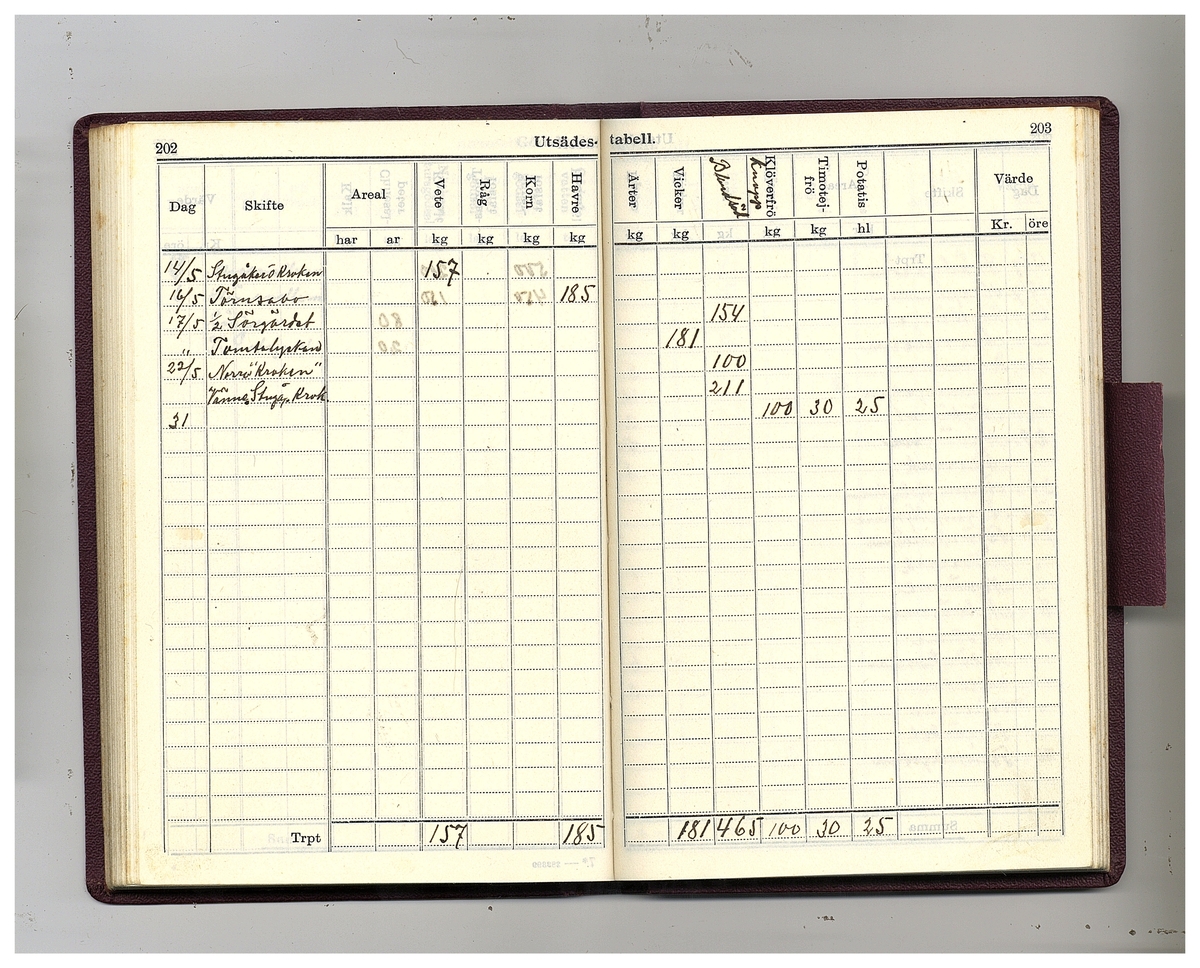 202
Utsädes-tabell.
203
Dag Skifte Areal Vete Råg Korn Havre Ärter Vicker Blindsäd Klöverfrö Knapp Timotej-frö Potatis Värde
har ar kg kg kg kg kg kg kg kg kg hl Kr. öre
14/5 Stugåker Ö Kroken 157
16/5 Törnsabo 185
17/5 1/2 Sörgärdet 154
" Tomtalyckan 181
22/5 Norra "Kroken" 100
Stugåk. Krok 211
31 100 30 25
Trpt 157 185 181 465 100 30 25